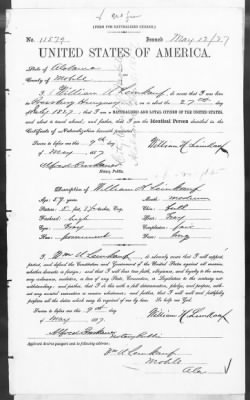 (FORM FOR NATURALIZED CITIZEN.)
No. 11579 Issued May 12/87
UNITED STATES OF AMERICA.
State of Alabama
County of Mobile
I, William H Leinkauf, do swear that I was born in
Hungary on or about the 27th day
of July 1827; that I am a NATURALIZED AND LOYAL CITIZEN OF THE UNITED STATES,
and about to travel abroad; and further, that I am the Identical Person described in the
Certificate of Naturalization herewith presented.
Sworn to before me this 9th day
of May 1887
William H. Leinkauf
Notary Public.
Description of William H. Leinkauf
Age: 59 years
Mouth: medium
Stature: 5 feet
Chin:
Forehead: high
Hair: Gray
Eyes: Gray
Complexion: fair
Nose: prominent
Face: long
I, Wm H Leinkauf, do solemnly swear that I will support,
protect, and defend the Constitution and Government of the United States against all enemies,
whether domestic or foreign; and that I will bear true faith, allegiance, and loyalty to the same,
any ordinance, resolution, or law of any State, Convention, or Legislature to the contrary not-
withstanding; and further, that I do this with a full determination, pledge, and purpose, with-
out any mental reservation or evasion whatsoever; and further, that I will well and faithfully
perform all the duties which may be required of me by law. So help me God.
Sworn to before me this 9th day
of May 1887
William H. Leinkauf
Notary Public
Applicant desires passport sent to following address:
Wm H Leinkauf
Mobile
Ala